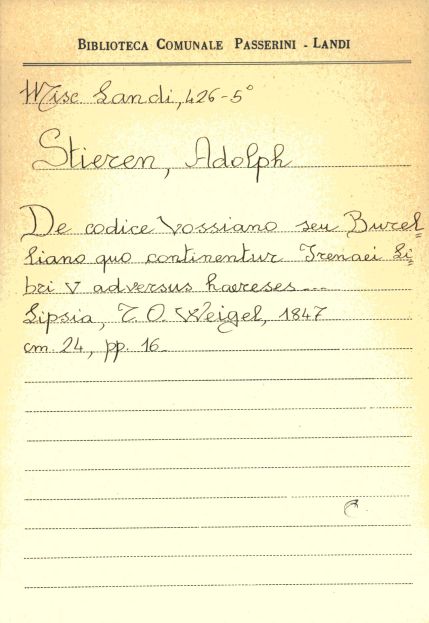 BIBLIOTECA COMUNALE PASSERINI - LANDI
Misc. Landi, 426-5°
Stieren, Adolph
De codice Vossiano seu Burel=
liano quo continentur Irenaei Li=
bri V adversus haereses...
Lipsia, T. O. Weigel, 1847
cm. 24, pp. 16.